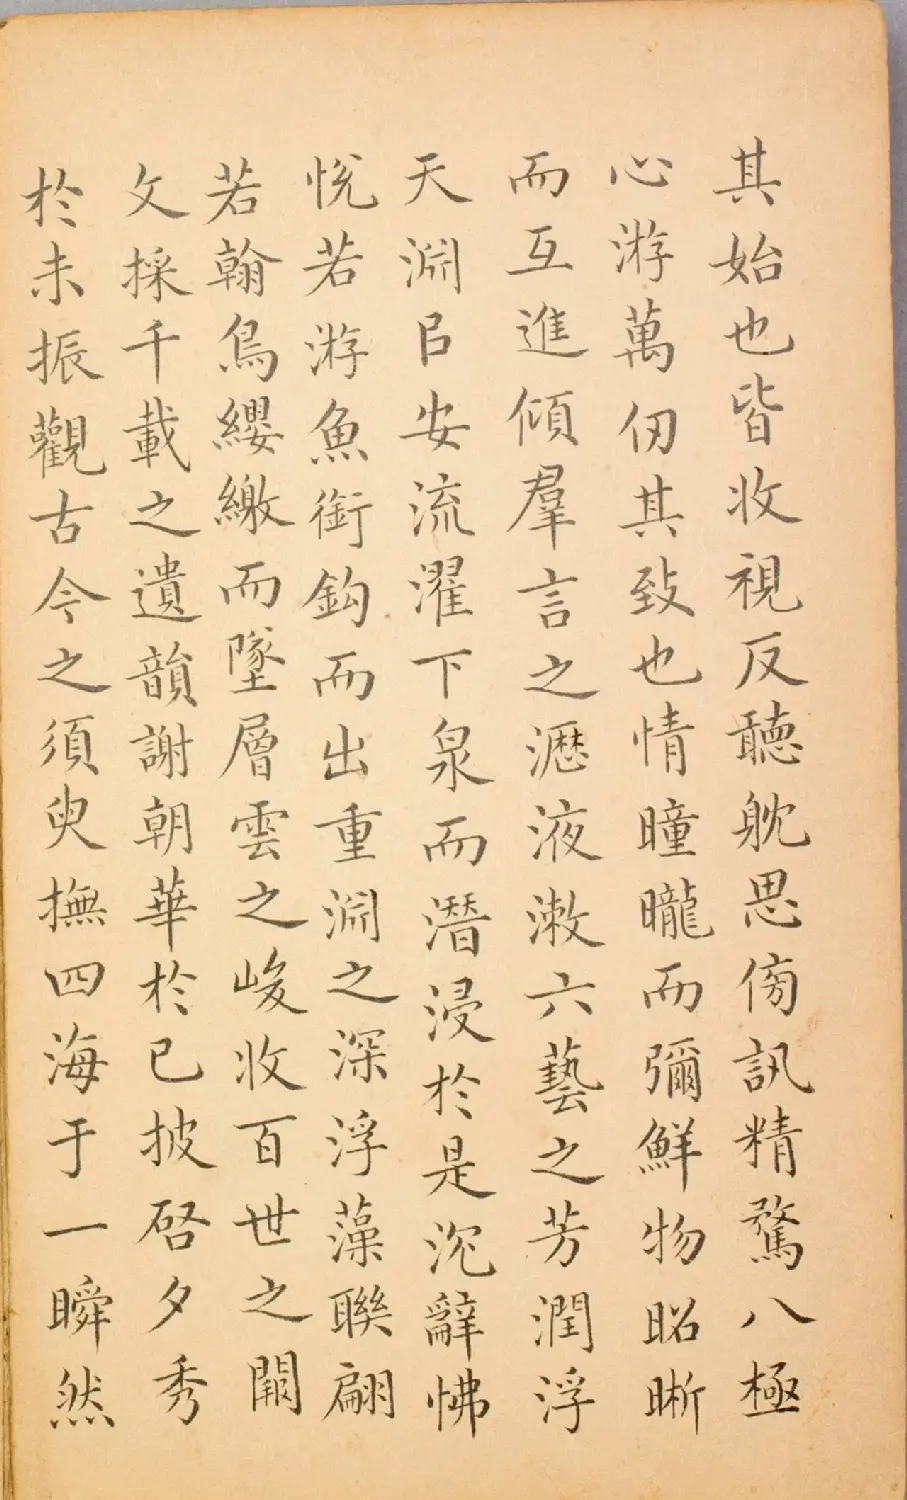 其始也皆收視反聽躭思傍訊精騖八極
心游萬仞其致也情曈曨而彌鮮物昭晣
而互進傾羣言之瀝液漱六藝之芳潤浮
天淵㠯安流濯下泉而潛浸於是沉辭怫
悅若游魚銜鉤而出重淵之深浮藻聯翩
若翰鳥纓繳而墜層雲之峻收百世之闕
文採千載之遺韻謝朝華於已披啓夕秀
於未振觀古今之須臾撫四海于一瞬然